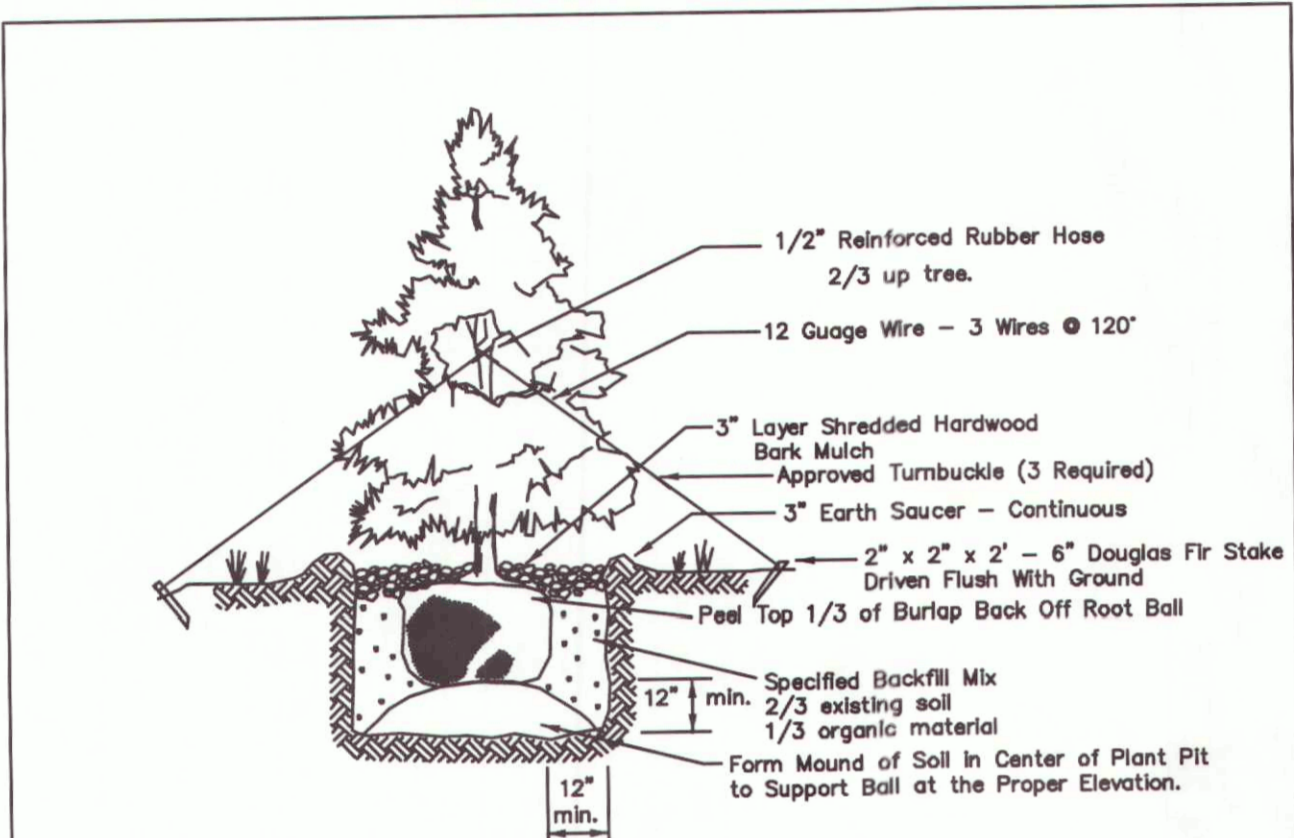 1/2" Reinforced Rubber Hose
2/3 up tree.
12 Guage Wire – 3 Wires @ 120°
3" Layer Shredded Hardwood
Bark Mulch
Approved Turnbuckle (3 Required)
3" Earth Saucer – Continuous
2" x 2" x 2' – 6" Douglas Fir Stake
Driven Flush With Ground
Peel Top 1/3 of Burlap Back Off Root Ball
Specified Backfill Mix
12" min.
2/3 existing soil
1/3 organic material
Form Mound of Soil in Center of Plant Pit
to Support Ball at the Proper Elevation.
12"
min.